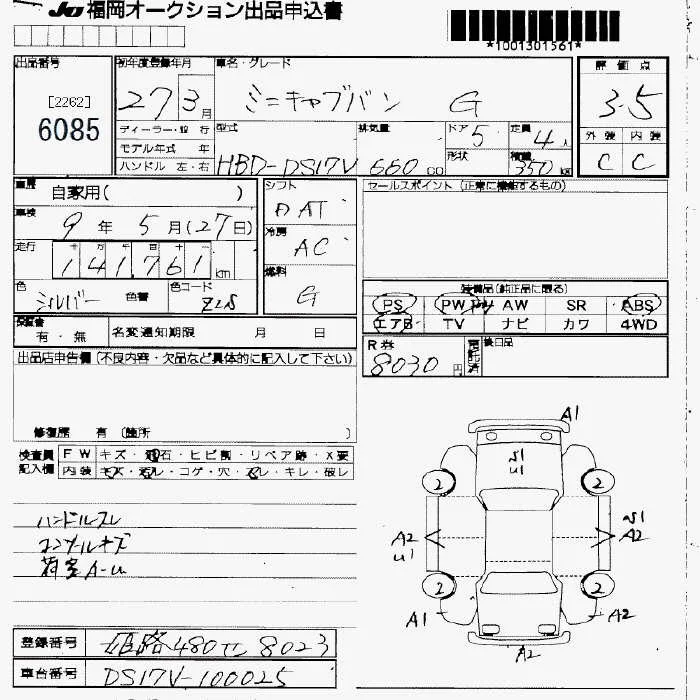 JU 福岡オークション出品申込書
*1001301561*
出品番号
[2262]
6085
初年度登録年月
27 3 月
車名・グレード
ミニキャブバン G
評価点
3.5
外装 内装
C C
ディーラー・並行
モデル年式 年
ハンドル 左・右
型式
HBD-DS17V
排気量
660 CC
ドア
5
形状
定員
4人
積載
350 kg
車歴
自家用( )
車検
9年 5月(27日)
走行
十 万 千 百 十
141,761 km
色
シルバー
色替
色コード
シフト
DAT
冷房
AC
燃料
G
セールスポイント (正常に機能するもの)
装備品(純正品に限る)
PS PW AW SR ABS
エアB TV ナビ カワ 4WD
保証書
有・無
名変通知期限 月 日
R券
8030 円
後日品
出品店申告欄(不良内容・欠品など具体的に記入して下さい)
修復歴 有 (箇所 )
検査員記入欄
FW キズ・飛石・ヒビ割・リペア跡・X要
内装 キズ・汚レ・コゲ・穴・スレ・キレ・破レ
ハンドルスレ
荷室A-U
A1
S1
U1
2
2
A2
U1
S1
A2
2
2
A1
A2
A2
登録番号
姫路480 8023
車台番号
DS17V-100025